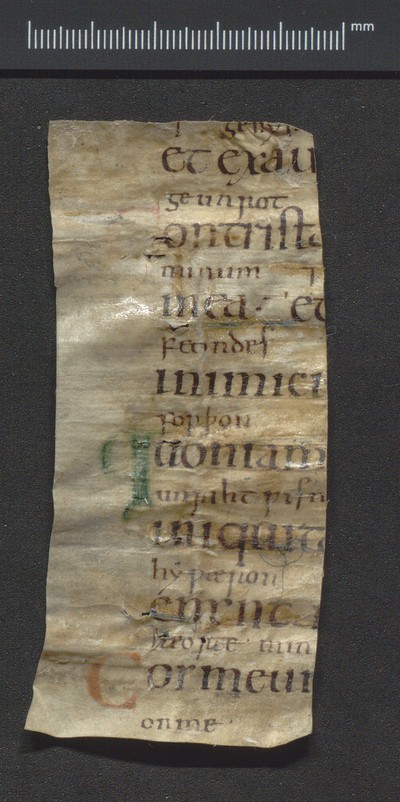 mm
7 gehyr
et exau
geunrot
ontrista
minum 7
mea· et
feondes
inimici
forþon
Quoniam
unriht wisn
iniquit
hy wæron
heorte min
Cor meum
on me